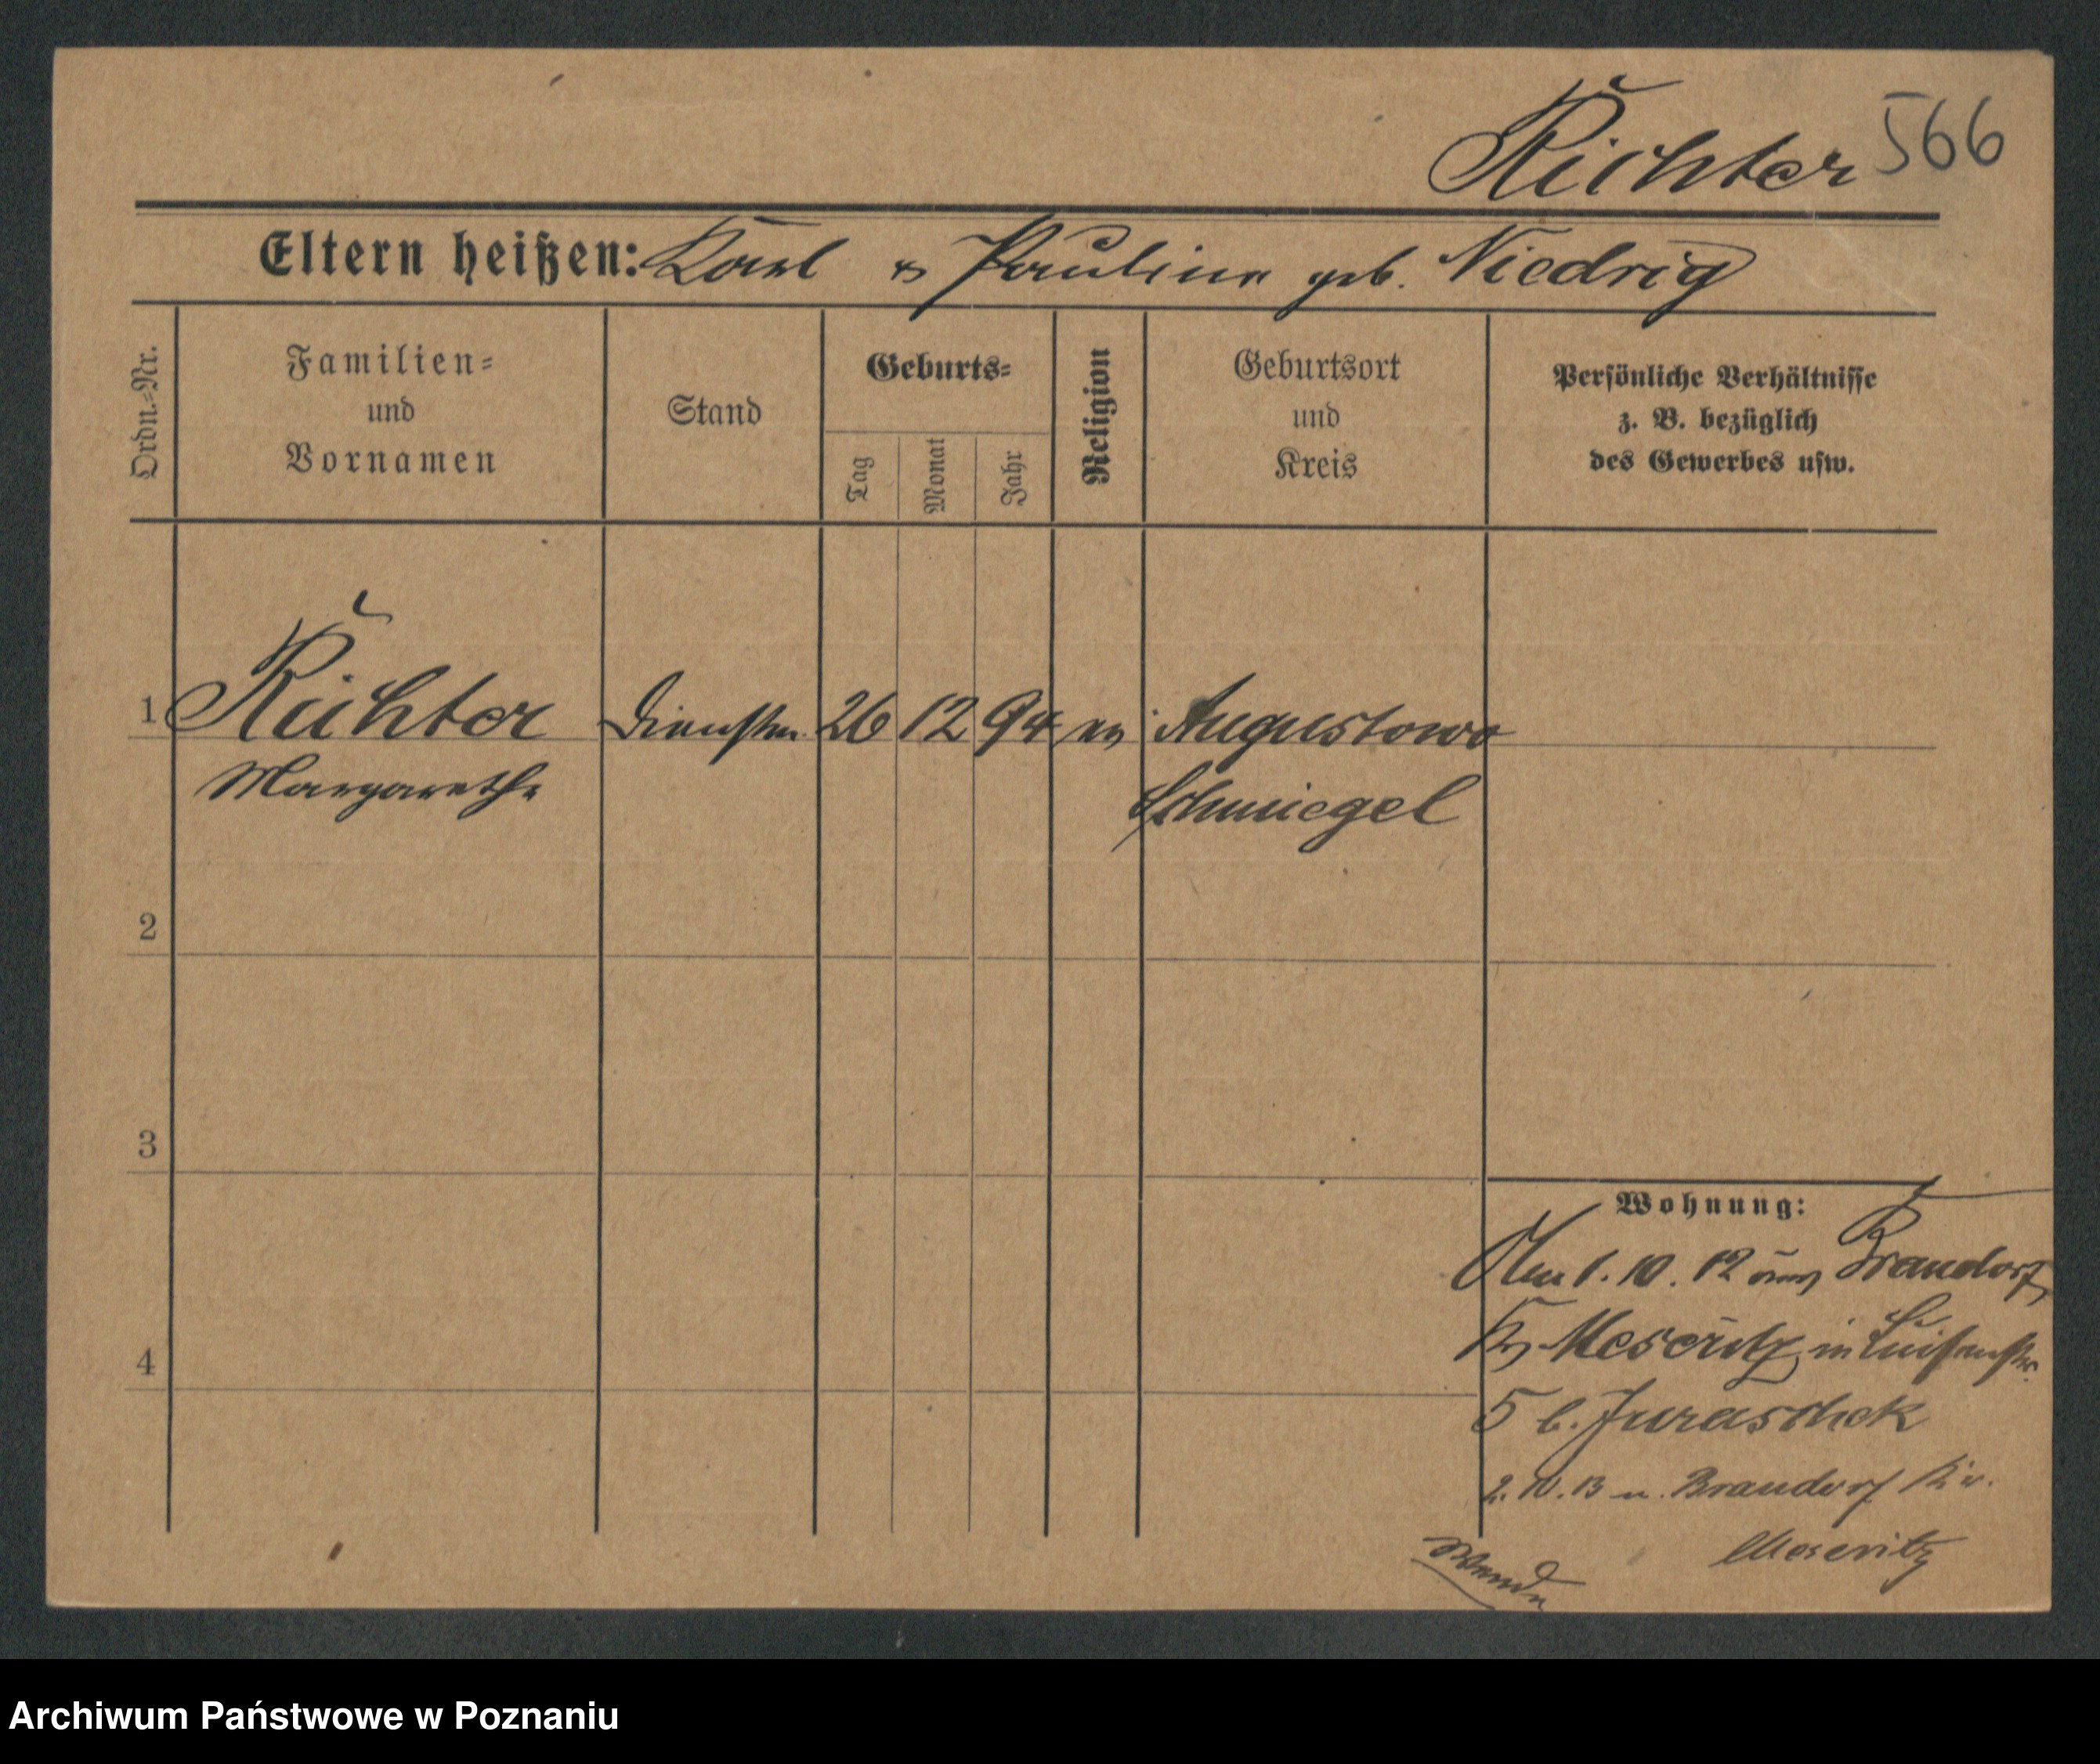 Richter 566
Eltern heißen: Karl & Pauline geb. Niedrig
Ordn.-Nr.
Familien-
und
Vornamen
Stand
Geburts-
Tag
Monat
Jahr
Religion
Geburtsort
und
Kreis
Persönliche Verhältnisse
z. B. bezüglich
des Gewerbes usw.
1 Richter Dienstm. 26 12 94 ev Augustowo
Margarethe Schmiegel
2
3
4
Wohnung:
1. 10. 12 aus Brandorf
Kr Meseritz in Luisenstr.
5 b. Juraschek
2. 10. 13 n. Brandorf Kr.
Meseritz
Wenden
Archiwum Państwowe w Poznaniu